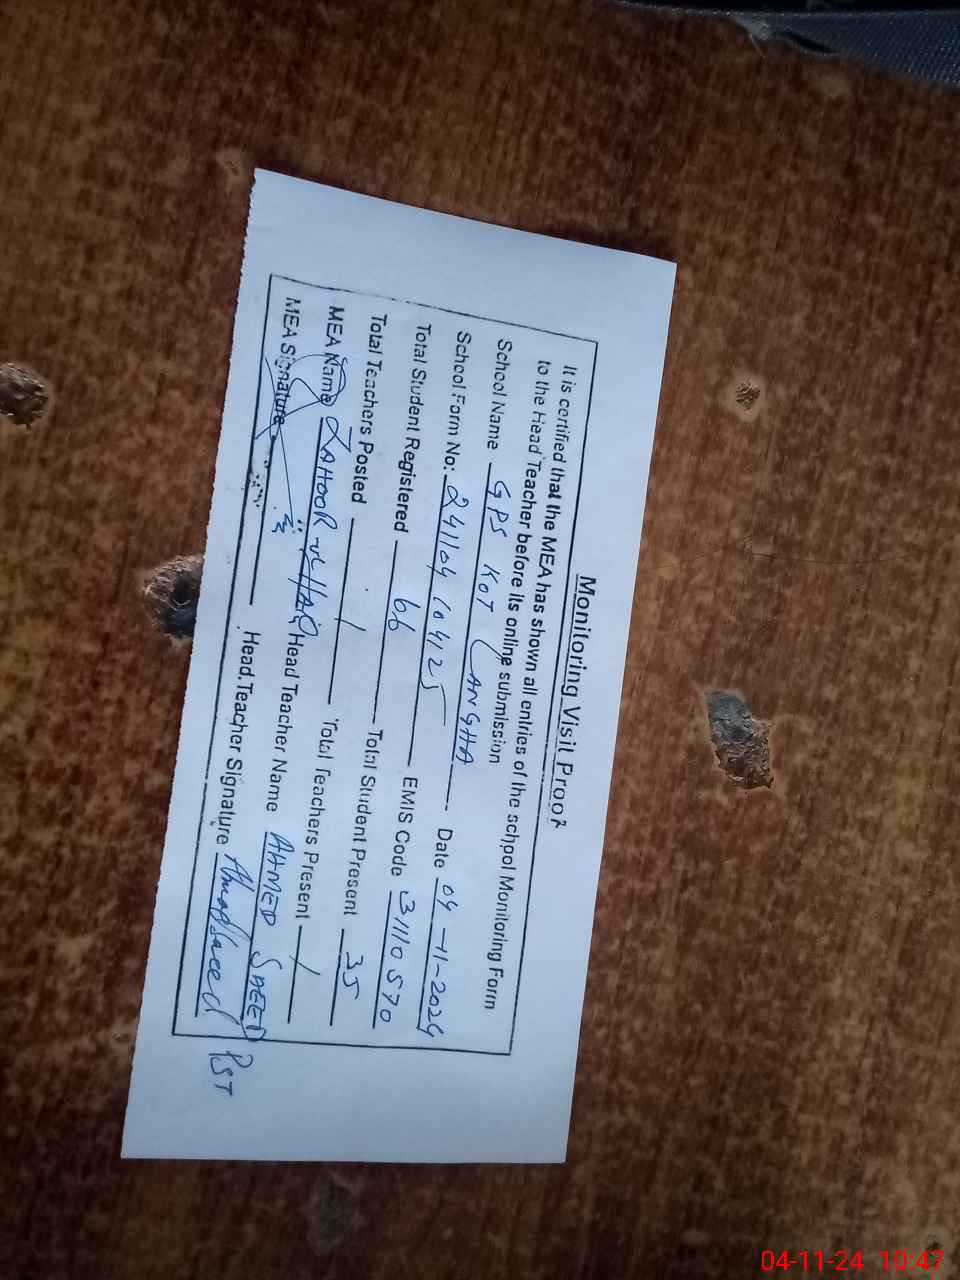 Monitoring Visit Proof
It is certified that the MEA has shown all entries of the school Monitoring Form
to the Head Teacher before its online submission
School Name GPS KOT LANGHA
School Form No: 241104 104125 Date 04-11-2024
Total Student Registered 66 EMIS Code 31110570
Total Teachers Posted 1 Total Student Present 35
MEA Name ZAHOOR-UL-HAQ Total Teachers Present 1
Head Teacher Name AHMED SAEED
MEA Signature Head Teacher Signature Ahmad Saeed
PST
04-11-24 10:47